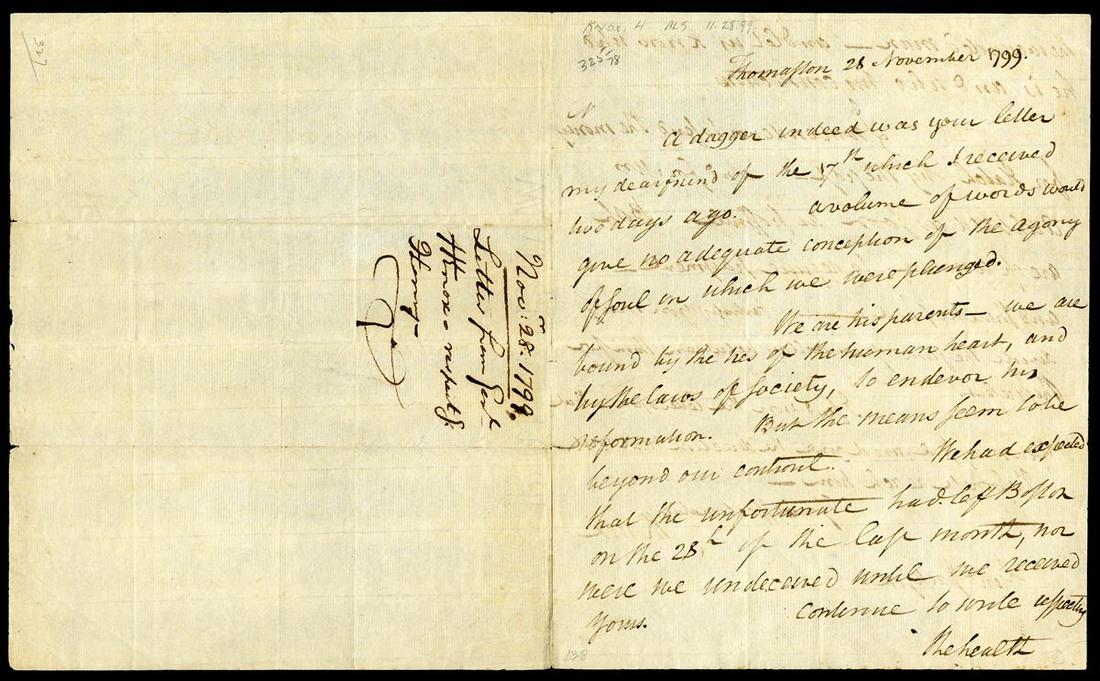 327
Novr: 28. 1799.
Letter from Genl
HKnox - respectg.
Henry -
Knox. 4 ALS 11.28.99
325
78
Thomaston 28 November 1799.
A dagger indeed was your letter
my dear friend of the 17th which I received
two days ago. A volume of words would
give no adequate conception of the agony
of soul in which we were plunged.
We are his parents - we are
bound by the ties of the human heart, and
by the laws of society, to endevor his
reformation. But the means seem to be
beyond our controul. We had expected
that the unfortunate had left Boston
on the 28th of the last month, nor
were we undeceived until we received
yours. Continue to write respecting
the health
138